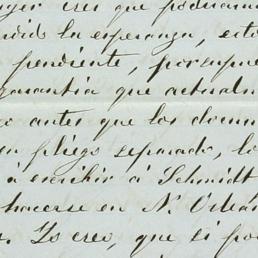 creo que podriamos
la esperanza, esto
pendiente, porsupue
garantia que actualm
o antes que los docum
en pliego separado, lo
á escribir á Schmidt
hacerse en N. Orlean
Yo creo, que si po